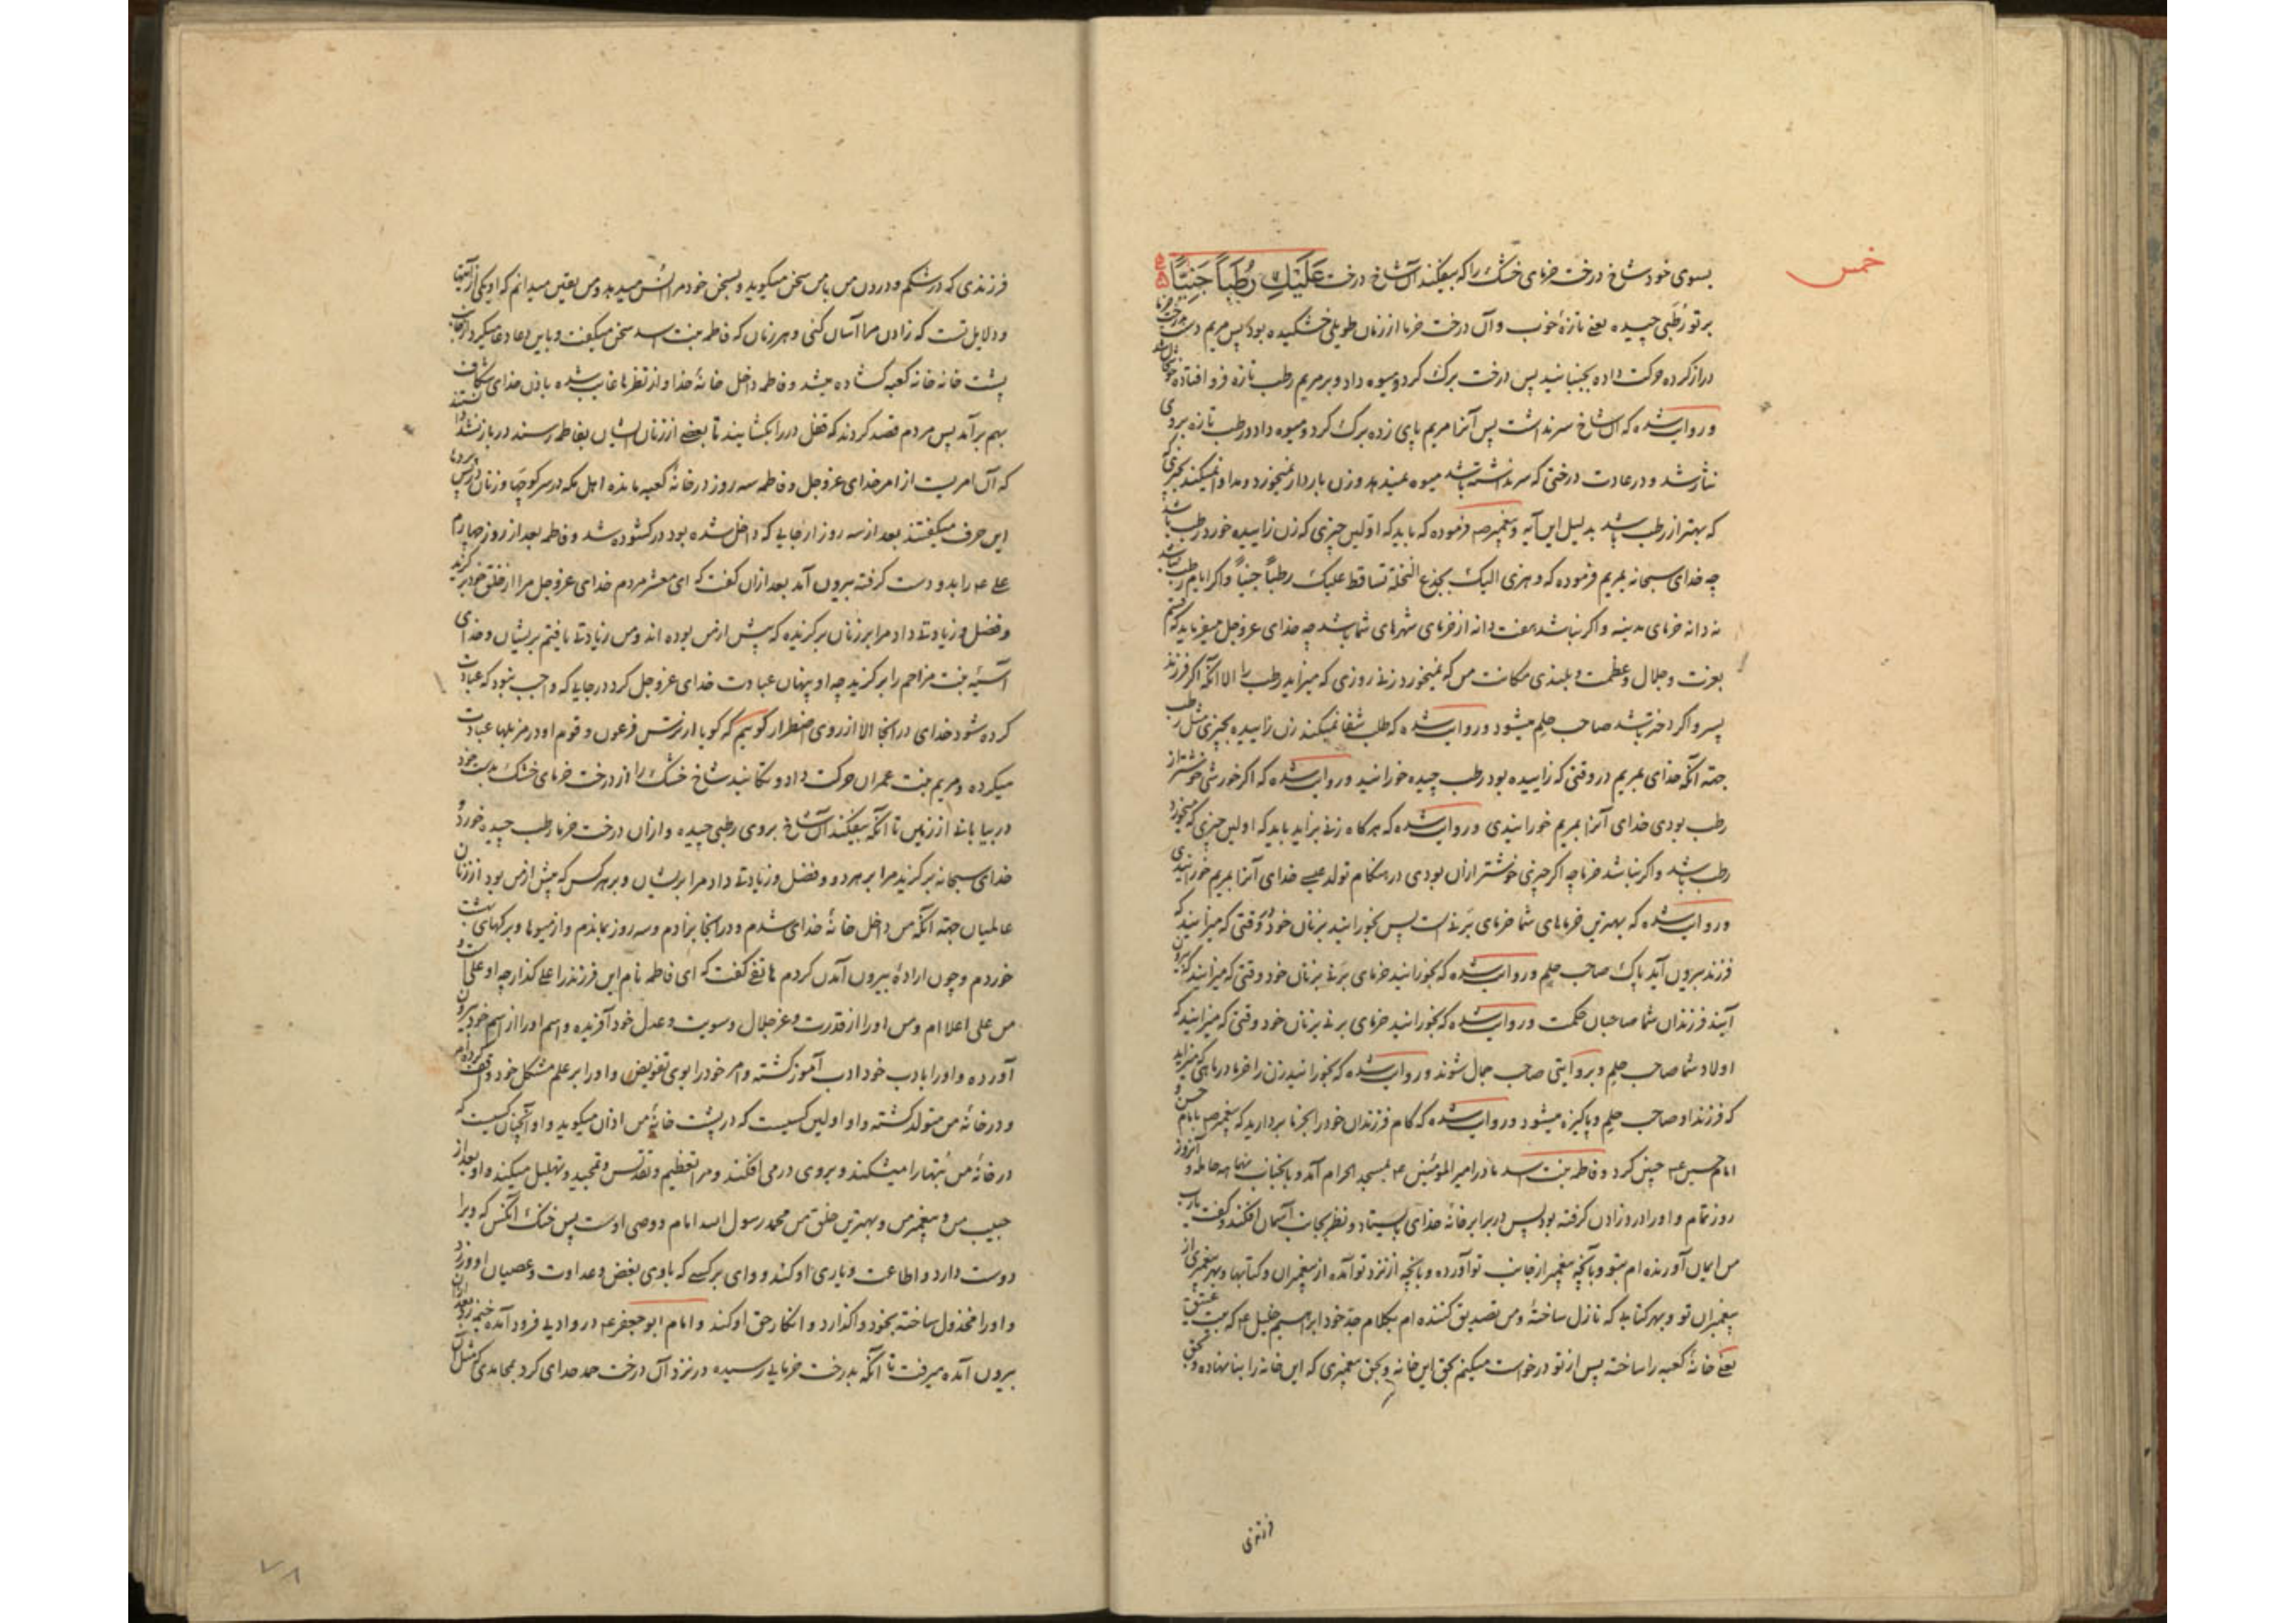 خمس
بسوی خود شاخ درخت خرمای خشک را که بیفکند آن شاخ درخت عَلَیْكِ رُطَبًا جَنِیًّا
بر تو رُطَبی چیده یعنی تازهٔ خوب و آن درخت خرما از زمان طویلی خشکیده بود پس مریم دست بدرخت خرما
دراز کرده حرکت داده بجنبانید پس درخت برک کرد و میوه داد و بر مریم رطب تازه فرو افتاده
و روایت شده که آن شاخ سر نداشت پس آنرا مریم بپای زده برک کرد و میوه داد و رطب تازه بروی
نثار شد و در عادت درختی که سر نداشته باشد میوه نمیدهد و زن باردار نمیخورد و مداوا نمیکند بچیزی
که بهتر از رطب باشد بدلیل این آیه و پیغمبر ص فرموده که باید که اوّلین چیزی که زن زاییده خورد رطب باشد
چه خدای سبحانه بمریم فرموده که و هزی الیک بجذع النخلة تساقط علیک رطباً جنیاً و اکر ایام رطب نباشد
نه دانه خرمای مدینه و اکر نباشد هفت دانه از خرمای شهرهای شما باشد چه خدای عزوجل میفرماید که قسم
بعزت و جلال و عظمت و بلندی مکانت من که نمیخورد زنی روزی که میزاید رطب را الا آنکه اکر فرزند
پسر و اکر دختر باشد صاحب حلم میشود و روایت شده که طلب شفا نمیکند زن زاییده بچیزی مثل رطب
جهته آنکه خدای بمریم در وقتی که زاییده بود رطب چیده خورانید و روایت شده که اکر خورشی خوشتر از
رطب بودی خدای آنرا بمریم خورانیدی و روایت شده که هرکاه زنی بزاید باید که اولین چیزی که میخورد
رطب باشد و اکر نباشد خرما چه اکر چیزی خوشتر ازان بودی در هنکام تولد عیسی خدای آنرا بمریم خورانیدی
و روایت شده که بهترین خرماهای شما خرمای بَرنی است پس بخورانید بزنان خود وقتی که میزایند که
فرزند بیرون آید پاک صاحب حلم و روایت شده که بخورانید خرمای بَرنی بزنان خود وقتی که میزایند که بیرون
آیند فرزندان شما صاحبان حکمت و روایت شده که بخورانید خرمای برنی بزنان خود وقتی که میزایند که
اولاد شما صاحب حلم و بروایتی صاحب جمال شوند و روایت شده که بخورانید زن را خرما در ماهی که میزاید
که فرزند او صاحب حلم و پاکیزه میشود و روایت شده که کام فرزندان خود را بخرما بردارید که پیغمبر ص بامام حسن و
امام حسین ع چنین کرد و فاطمه بنت اسد مادر امیر المؤمنین ع بمسجد الحرام آمد و بآنجناب نه ماهه حامله و آنروز
روز تمام و او را درد زادن کرفته بود پس در برابر خانهٔ خدای بایستاد و نظر بجانب آسمان افکند و کفت یارب
من ایمان آورنده ام بتو و بآنچه پیغمبر از جانب تو آورده و بآنچه از نزد تو آمده از پیغمبران و کتابها و بهر پیغمبری از
پیغمبران تو و بهر کتابی که نازل ساختهٔ و من تصدیق کننده ام بکلام جدّ خود ابراهیم خلیل ع که بیت عتیق
یعنی خانهٔ کعبه را ساخته پس از تو درخواست میکنم بحق این خانه و بحق پیغمبری که این خانه را بنا نهاده و بحق
فرزندی
فرزندی که در شکم و درون من با من سخن میکوید و بسخن خود مرا انس میدهد و من یقین میدانم که او یکی از آیتها
و دلایل تست که زادن مرا آسان کنی و هر زمان که فاطمه بنت اسد سخن میکفت و باین دعا دعا میکرد از جانب
پشت خانه خانه کعبه کشاده میشد و فاطمه داخل خانهٔ خدا و از نظرها غایب شده باذن خدای شکاف
بهم برآمد پس مردم قصد کردند که قفل در را بکشایند تا بعضی از زنان ایشان بفاطمه رسند در باز نشد
که آن امریست از امر خدای عزوجل و فاطمه سه روز در خانهٔ کعبه مانده اهل مکه در سر کوچها و زنان در پس پردها
این حرف میکفتند بعد از سه روز از جایی که داخل شده بود در کشوده شد و فاطمه بعد از روز چهارم
علی ع را بدو دست کرفته بیرون آمد بعد ازان کفت که ای معشر مردم خدای عزوجل مرا از خلق خود برکزید
و فضل و زیادتی داد مرا بر زنان برکزیده که پیش از من بوده اند و من زیادتی یافتم بریشان و خدای
آسیهٔ بنت مزاحم را برکزید چه او پنهان عبادت خدای عزوجل کرد در جایی که واجب نبود که عبادت
کرده شود خدای در آنجا الا از روی اضطرار کوییم که کویا از ترس فرعون و قوم او در مزبلها عبادت
میکرده و مریم بنت عمران حرکت داد و تکانید شاخ خشک را از درخت خرمای خشک بدست خود
در بیابانی از زمین تا آنکه بیفکند آن شاخ بروی رطبی چیده و ازان درخت خرما رطب چیده خورد و
خدای سبحانه برکزید مرا بر هر دو و فضل و زیادتی داد مرا بریشان و بر هر کس که پیش از من بود از زنان
عالمیان جهته آنکه من داخل خانهٔ خدای شدم و در آنجا بزادم و سه روز بماندم و از میوها و برکهای بهشت
خوردم و چون ارادهٔ بیرون آمدن کردم هاتفی کفت که ای فاطمه نام این فرزند را علی کذار چه او علی است و
من علی اعلا ام و من او را از قدرت و عز جلال و سویت و عدل خود آفریده و اسم او را از اسم خود بیرون
آورده و او را بادب خود ادب آموز کشته و امر خود را بوی تفویض و او را بر علم مشکل خود واقف کرده ام
و در خانهٔ من متولد کشته و او اولین کسیست که در پشت خانهٔ من اذان میکوید و او آنچنان کسیست که
در خانهٔ من بُتهارا میشکند و بروی در می افکند و مرا تعظیم و تقدیس و تمجید و تهلیل میکند و او بعد از
حبیب من و پیغمبر من و بهترین خلق من محمد رسول الله امام و وصی اوست پس خنک آنکس که ویرا
دوست دارد و اطاعت و یاری او کند و وای بر کسی که با وی بغض و عداوت و عصیان او ورزد
و او را مخذول ساخته بخود واکذارد و انکار حق او کند و امام ابو جعفر ع در وادیی فرود آمده خیمه زد بعد ازان
بیرون آمده میرفت تا آنکه بدرخت خرمایی رسیده در نزد آن درخت حمد خدای کرد بمحامدی که مثل آن
۷۸